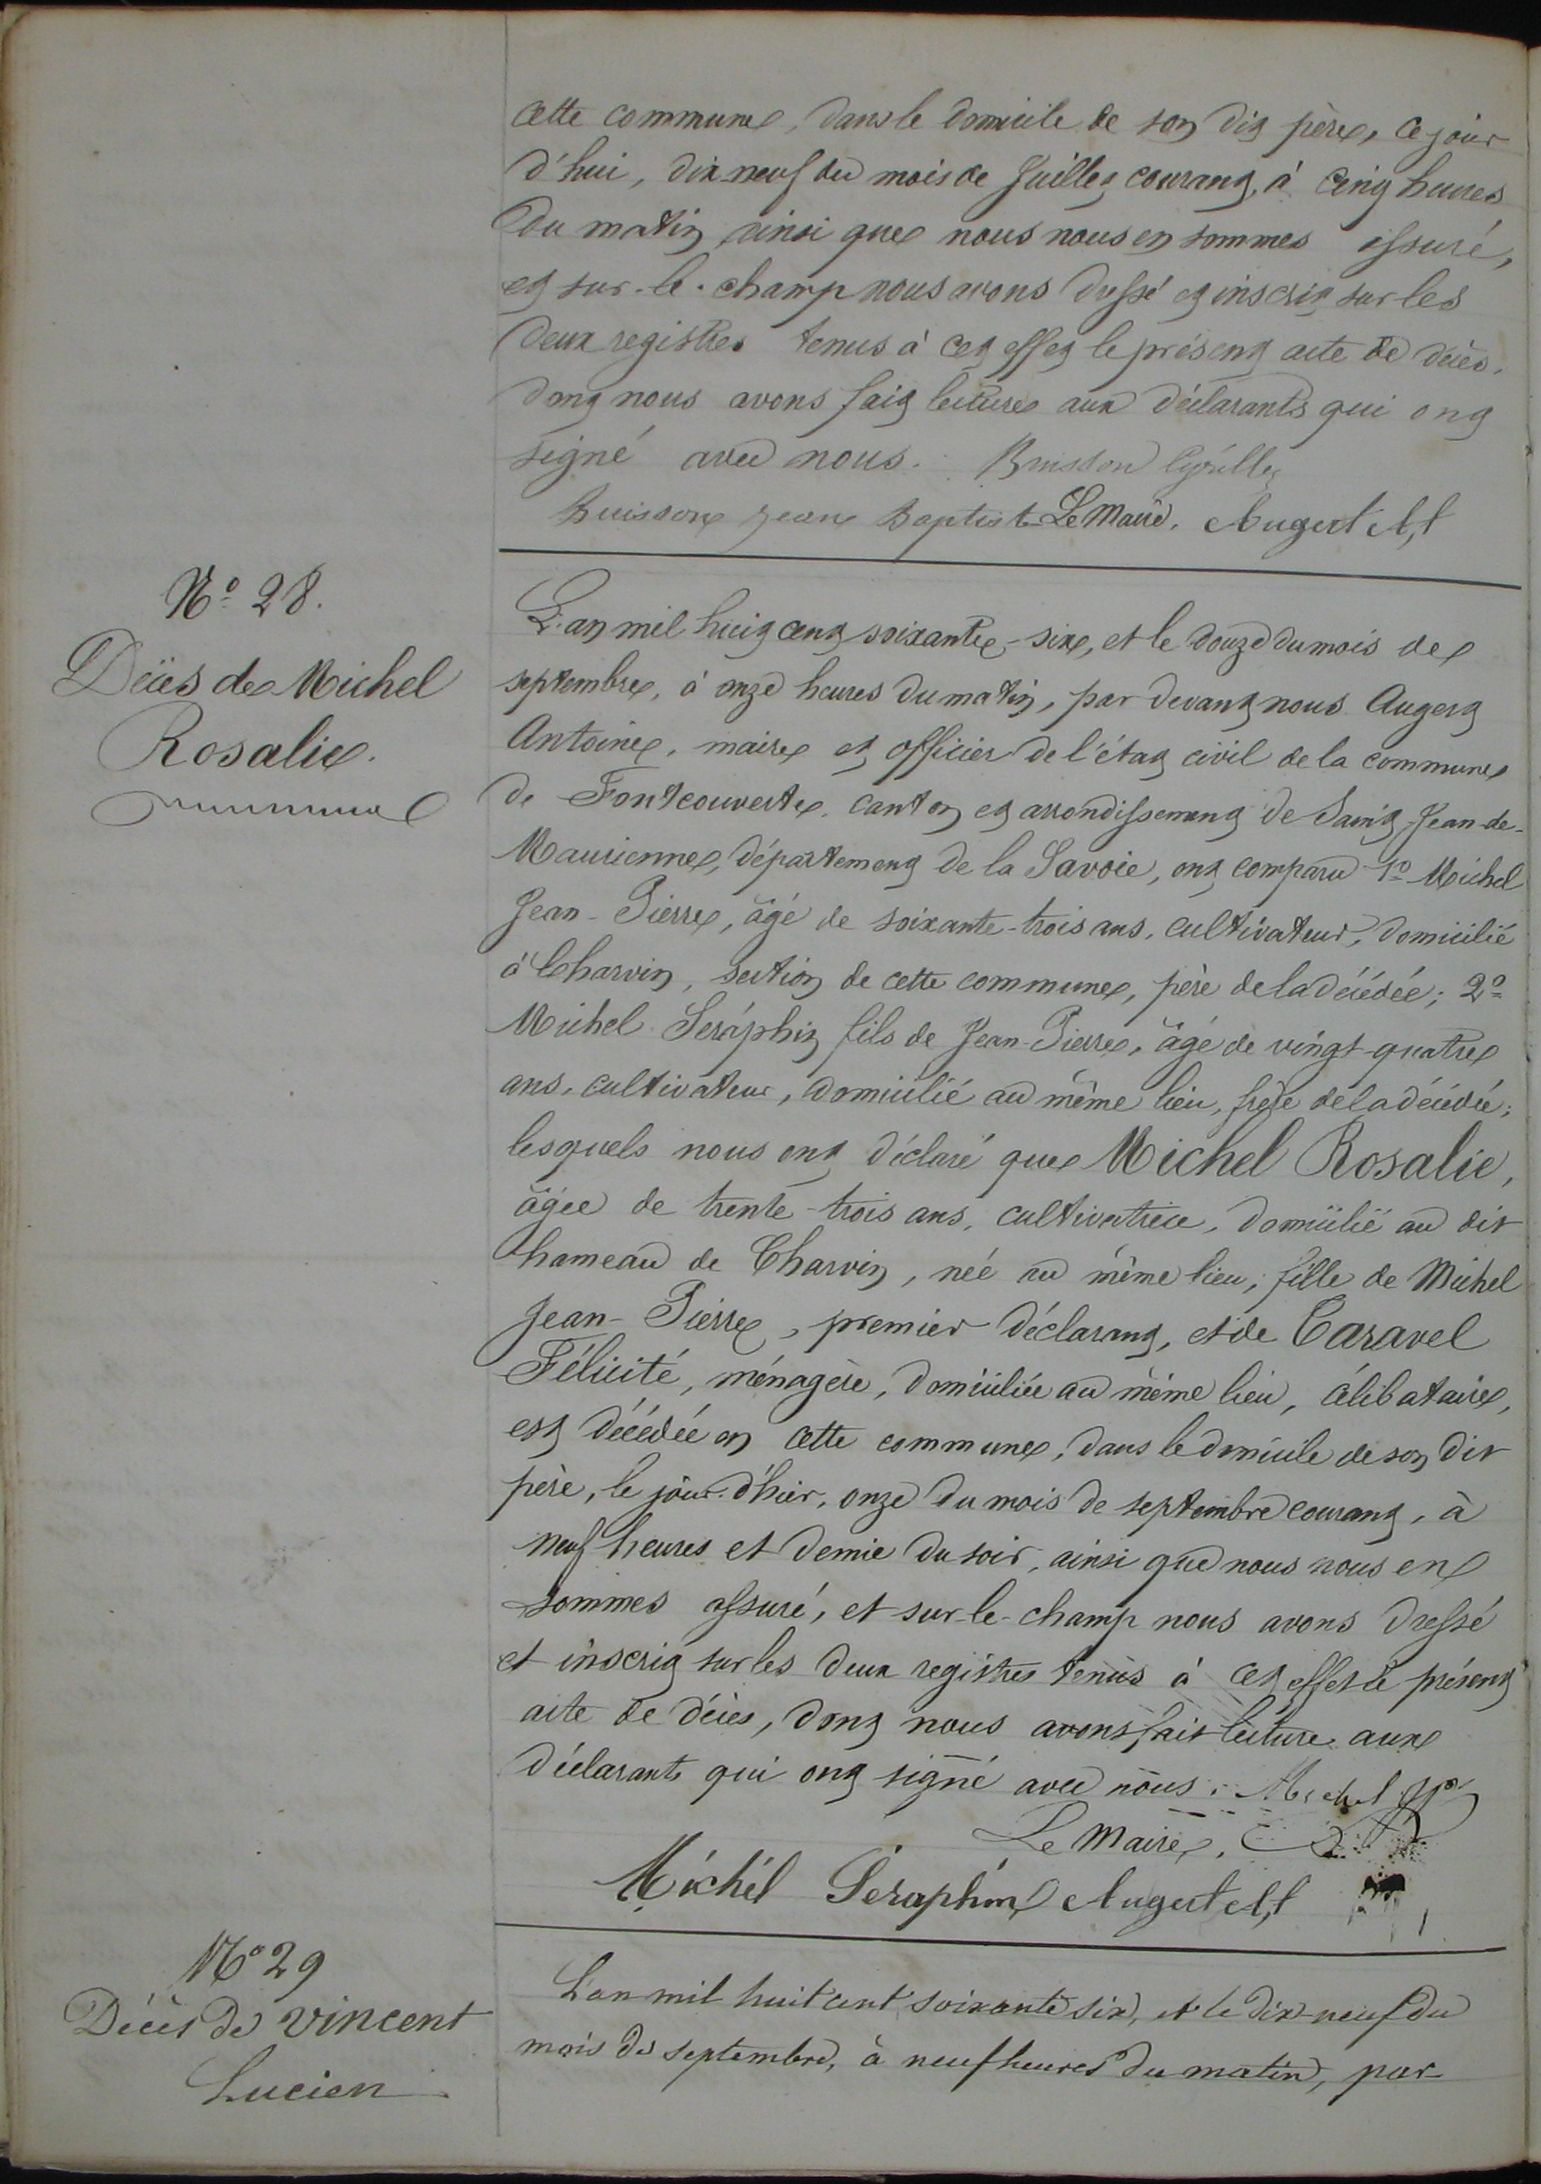 cette commune, dans le domicile de son dit père, ce jour
d'hui, dix-neuf du mois de Juillet courant, à cinq heures
du matin, ainsi que nous nous en sommes assuré,
et sur-le-champ nous avons dressé et inscrit sur les
deux registres tenus à cet effet le présent acte de décès,
dont nous avons fait lecture aux déclarants qui ont
signé avec nous. Buisson
Buisson Jean Baptist Le Maire, Augert At
N° 28.
Décès de Michel
Rosalie.
L'an mil huit cent soixante-six, et le douze du mois de
septembre, à onze heures du matin, par devant nous Augert
Antoine, maire et officier de l'état civil de la commune
de Fontcouverte, canton et arrondissement de Saint-Jean-de-
Maurienne, département de la Savoie, ont comparu 1° Michel
Jean-Pierre, âgé de soixante-trois ans, cultivateur, domicilié
à Charvin, section de cette commune, père de la décédée; 2°
Michel Séraphin fils de Jean-Pierre, âgé de vingt-quatre
ans, cultivateur, domicilié au même lieu, frère de la décédée;
lesquels nous ont déclaré que Michel Rosalie,
âgée de trente-trois ans, cultivatrice, domicilié au dit
hameau de Charvin, née au même lieu, fille de Michel
Jean-Pierre, premier déclarant, et de Caravel
Félicité, ménagère, domiciliée au même lieu, célibataire,
est décédée en cette commune, dans le domicile de son dit
père, le jour d'hier, onze du mois de septembre courant, à
neuf heures et demie du soir, ainsi que nous nous en
sommes assuré, et sur-le-champ nous avons dressé
et inscrit sur les deux registres tenus à cet effet le présent
acte de décès, dont nous avons fait lecture aux
déclarants qui ont signé avec nous. Michel
Le Maire,
Michel Séraphin Augert At
N° 29
Décès de Vincent
Lucien
L'an mil huit cent soixante six, et le dix-neuf du
mois de septembre, à neuf heures du matin, par